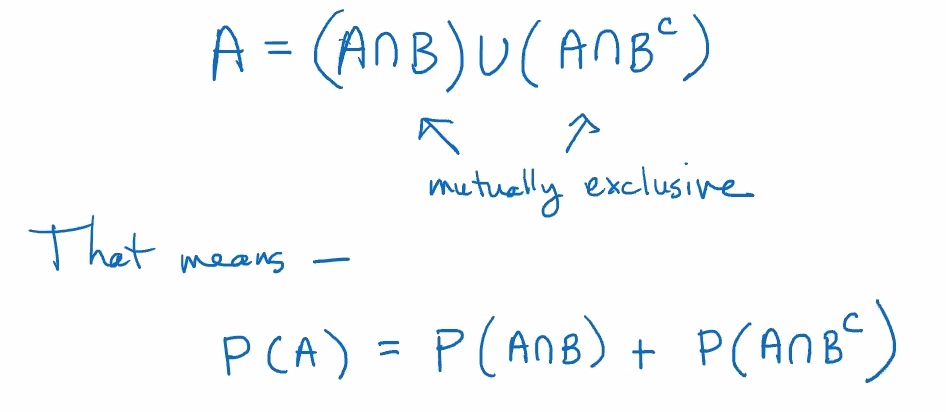 A = (A∩B)∪(A∩Bᶜ)
mutually exclusive
That means —
P(A) = P(A∩B) + P(A∩Bᶜ)